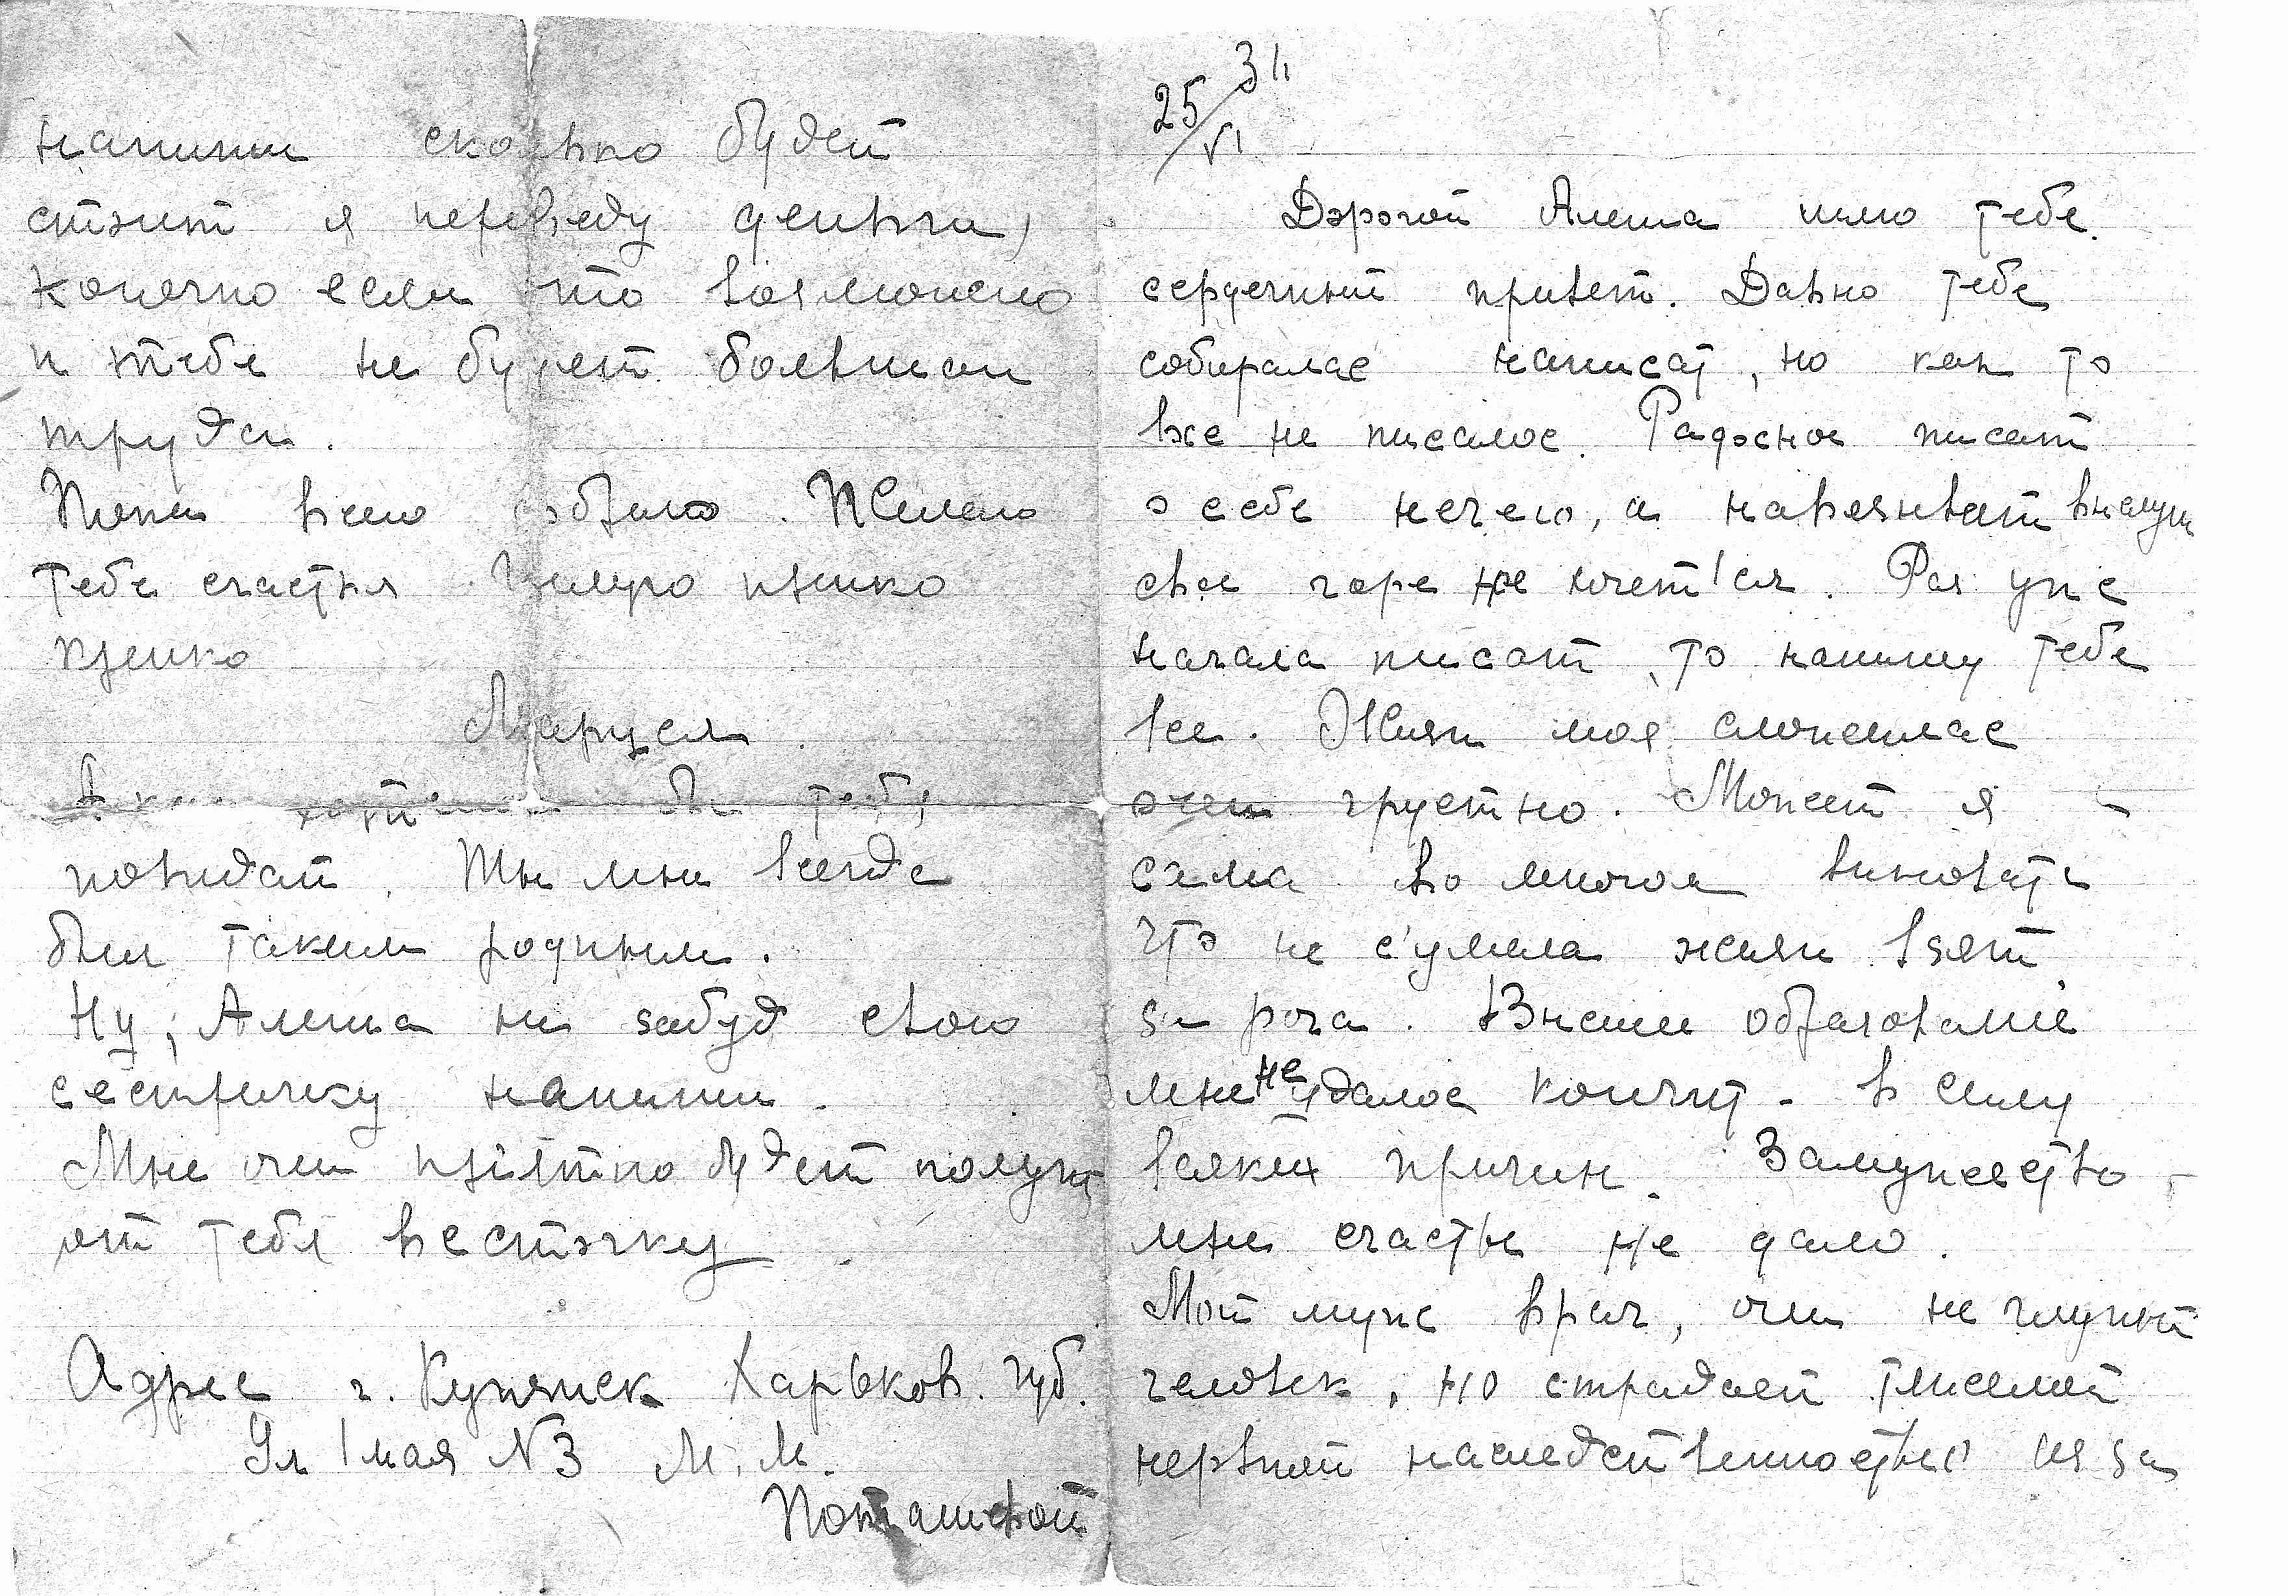 напиши сколько будет
стоит я переведу деньги,
конечно если это возможно
и тебе не будет большим
трудом.
Пока всего доброго. Желаю
тебе счастья Целую крепко
крепко
Маруся.
хотела бы тебя
повидат. Ты мне всегда
был таким родным.
Ну, Алеша не забуд свою
сестричку напиши.
Мне очен приятно будет получит
от тебя весточку
Адрес г. Купянск Харьков. губ.
Ул 1 мая N 3 М. М.
25/VI 31
Дорогой Алеша шлю тебе
сердечный привет. Давно тебе
собиралас написат, но как то
все не писалос. Радосное писат
о себе нечего, а навязыват
свое горе не хочет'ся. Раз уже
начала писат, то напишу тебе
все. Жизн моя сложилас
очен грустно. Может я
сама во многом виновата
что не с'умела жизн взят
за рога. Высшее образование
мне не удалос кончит. в силу
всяких причин. Замужество
мне счастье не дало.
Мой муж врач, очен не глупый
человек, но страдает тяжелой
нервной наследственностью из за